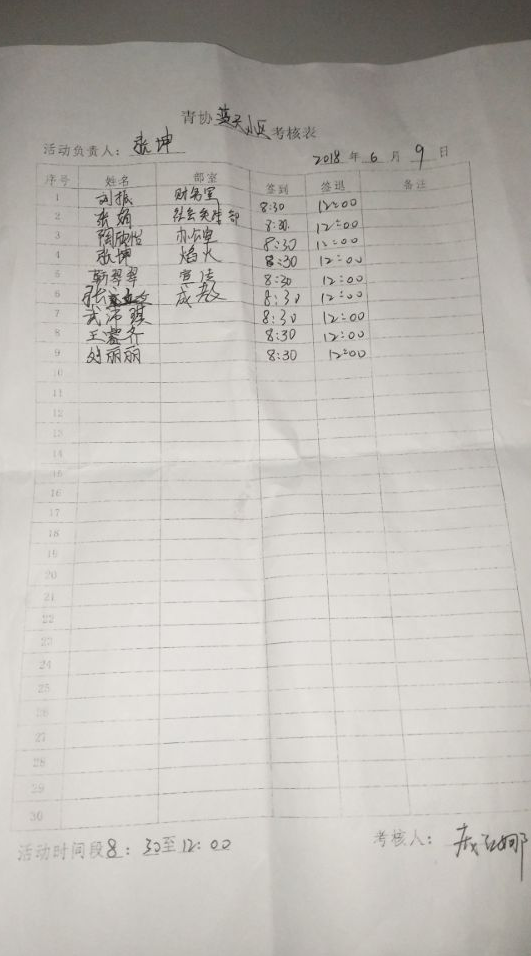 青协蓝天小区考核表
活动负责人：张坤
2018年6月9日
序号 姓名 部室 签到 签退 备注
1 刘振 财务室 8:30 12:00
2 张娟 部 8:30 12:00
3 陶欣怡 办公室 8:30 12:00
4 张坤 焰火 8:30 12:00
5 靳翠翠 宣传 8:30 12:00
6 张 成教 8:30 12:00
7 武沛琪 8:30 12:00
8 王 齐 8:30 12:00
9 刘丽丽 8:30 12:00
10
11
12
13
14
15
16
17
18
19
20
21
22
23
24
25
26
27
28
29
30
活动时间段8：30至12：00
考核人：